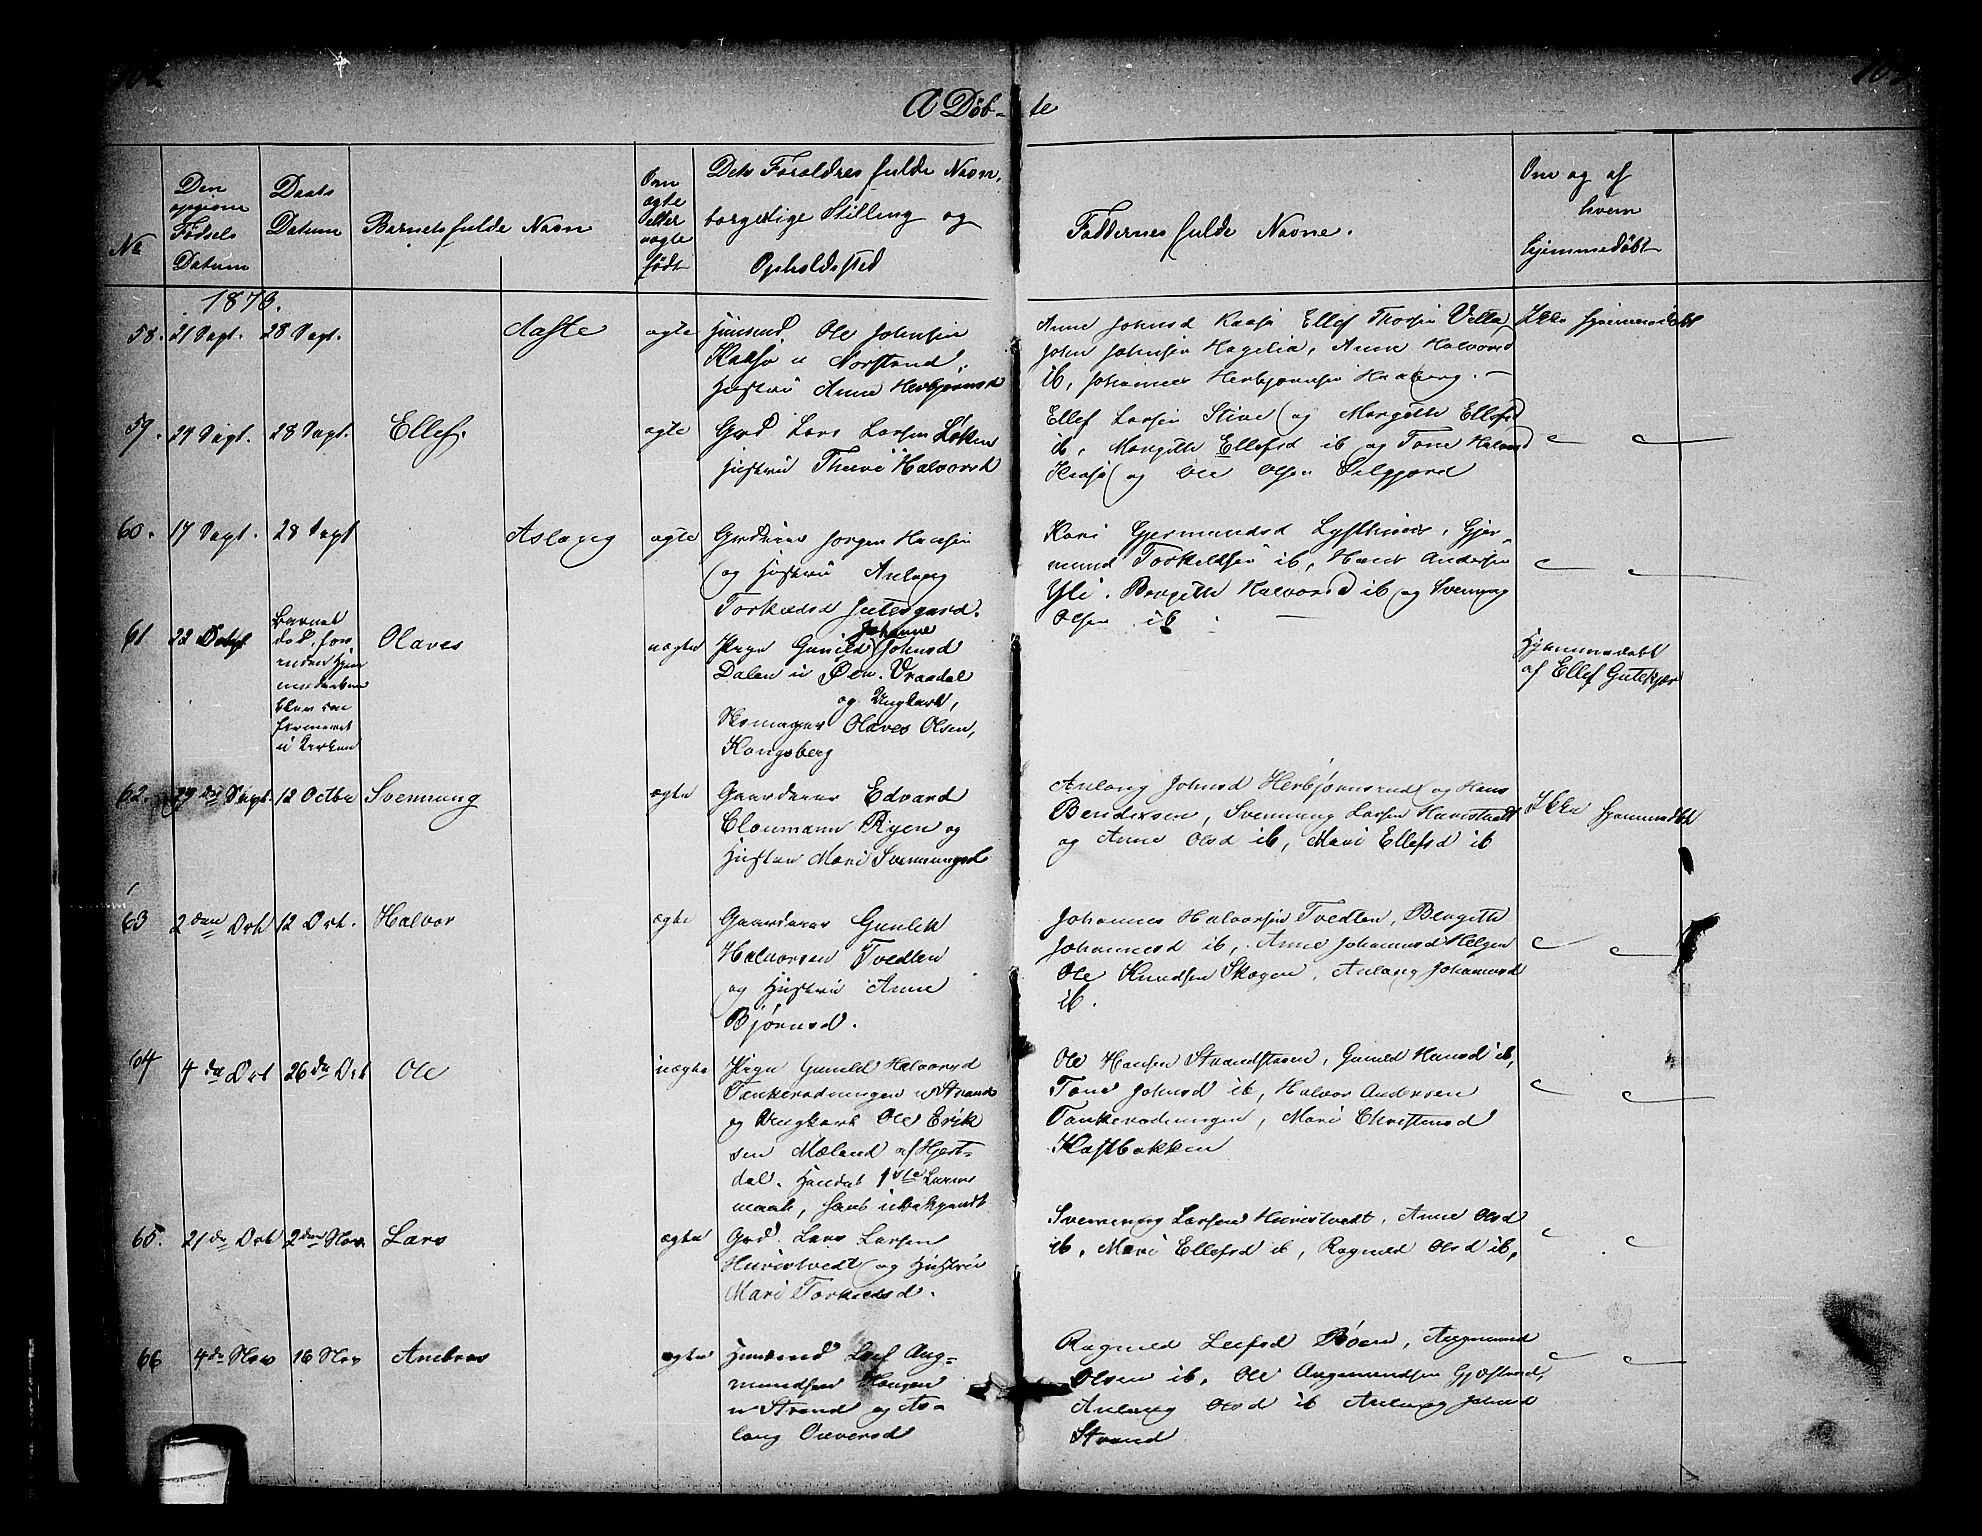 102
A Døb-te
No
Den opgivne Fødsels Datum
Daabs Datum
Barnets fulde Navn
Om ægte eller uægte født
Dets Forældres fulde Navn, borgerlige Stilling og Opholdssted
Faddernes fulde Navne.
Om og af hvem hjemmedøbt
1873.
58. 21 Sept. 28 Sept. Aaste ægte Huusmd Ole Johnsen
Kaasa u Norstand,
Hustru Anne Herbjørnsd
Anne Johnsd Kaasa Ellef Thorsen
John Johnsen Hagelia, Anne Halvorsd
ib, Johannes Herbjørnsen Haaberg. Ikke hjemmedøbt
59. 24 Sept. 28 Sept. Ellef. ægte Grd Lars Larsen Løken
Hustru Halvorsd
Ellef Larsen og Margith Ellefsd
ib, Margith Ellefsd ib og Tone Halvorsd
Kaasa og Ole Olsen Selgjord
60. 17 Sept. 28 Sept Aslaug ægte Grdeier Jørgen Hansen
og Hustru Anlaug
Torkildsd
Kari Gjermundsd Gjer-
mund Torkildsen ib, Hans Andersen
Yli. Bergith Halvorsd ib og Svenung
Olsen ib.
61 22 Barnet
død, før
enden Hjem
medaaben
blev con
firmeret
i Kirken
Olaves uægte Pige Gunild Johanne Johnsd
Dalen u Øen. Vraadal
og Ungkarl,
Skomager Olaves Olsen,
Kongsberg
Hjemmedøbt
af Ellef Gutekjær
62. 29de Sept. 12 Octbr Svennung ægte Gaardeier Edvard
Cloumann Ryen og
Hustru Mari Svennungsd
Anlaug Johnsd Herbjørnsrud og Hans
Bendixsen, Svennung Larsen
og Anne Olsd ib, Mari Ellefsd ib Ikke hjemmedøbt
63 2den Oct 12 Oct. Halvor ægte Gaardeier Gunlek
Halvorsen Tvedten
og Hustru Anne
Bjørnsd.
Johannes Halvorsen Tvedten, Bergith
Johannesd ib, Anne Johannesd Helgen
Ole Knudsen Skogen, Anlaug Johannesd
ib.
64 4de Oct 26de Oct Ole uægte Pige Gunild Halvorsd
u Strand
og Ungkarl Ole Erik
sen Mæland af Hjert-
dal. Hendes 1ste Leiers
maal, hans ubekjendt
Ole Hansen Strandstuen, Gunild Hansd ib,
Tone Johnsd ib, Halvor Andersen
Mari Christensd
Kastbakken
65. 21de Oct 2den Nov. Lars ægte Grd. Lars Larsen
Huvestvedt og Hustru
Mari Torkildsd.
Svennung Larsen Huvestvedt, Anne Olsd
ib, Mari Ellefsd ib, Ragnild Olsd ib,
66 4de Nov 16 Nov Ambros ægte Huusmd Leif Aug-
mundsen Haugen
u Strand og As-
laug
Ragnild Leifsd Bøen, Augmund
Olsen ib, Ole Augmundsen
Anlaug Olsd ib Anlaug Johnsd
Strand